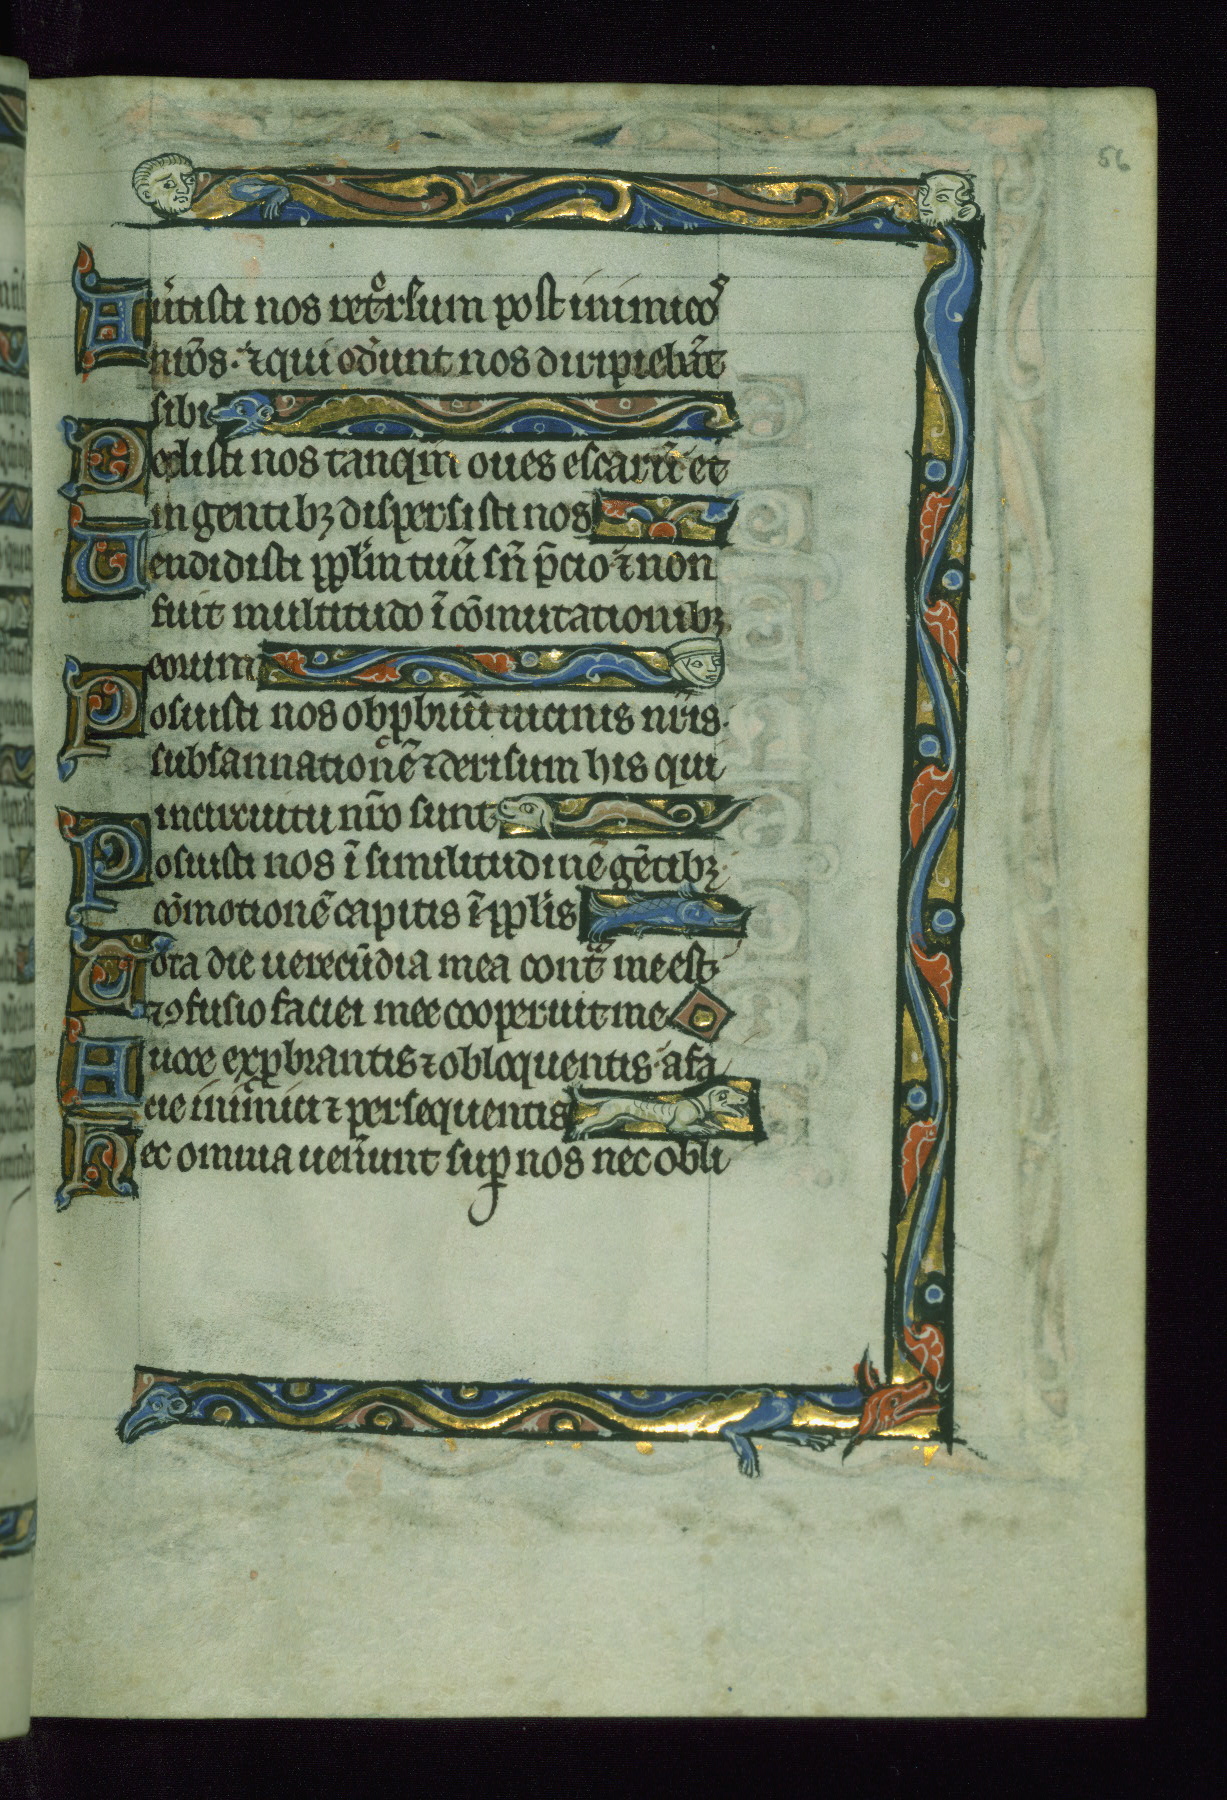 56
Au̾tisti nos ret͛rsum post inimicos
nr̄os· ⁊ qui od̾unt nos diripiebāt
sibi
Dedisti nos tanqm̄ oues escarū et
in gentibꝫ dispersisti nos
Uendidisti pplm̄ tuū sn̄ p̄cio· ⁊ non
fuit multitudo ī cōmutationibꝫ
eorum
Posuisti nos obꝓbriū uicinis nr̄is·
subsannationē ⁊ derisum his qui
in circuitu nr̄o sunt
Posuisti nos ī similitudinē gētibꝫ·
cōmotionē capitis ī pplīs
Tota die uerecūdia mea contᷓ me est·
⁊ ꝯfusio faciei mee cooperuit me
A uoce exꝓbrantis ⁊ obloquentis· a fa
cie inimici ⁊ persequentis
Hec omnia uen̾unt suꝑ nos nec obli